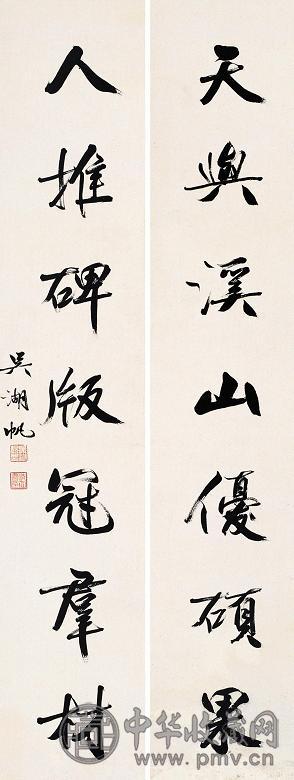 天與溪山優碩
人推碑版冠羣
吳湖帆
中华收藏网
www.pmv.cn